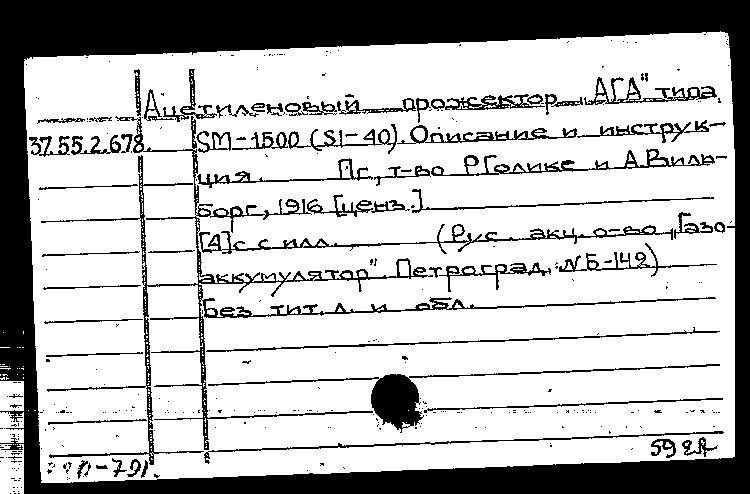 Ацетиленовый прожектор „АГА" типа
37.55.2.678. SM-1500 (SI-40). Описание и инструк-
ция. Пг., т-во Р.Голике и А.Виль-
борг, 1916 [ценз.].
[4]с с илл. (Рус. акц. о-во „Газо-
аккумулятор". Петроград. № Б-142)
Без тит. л. и обл.